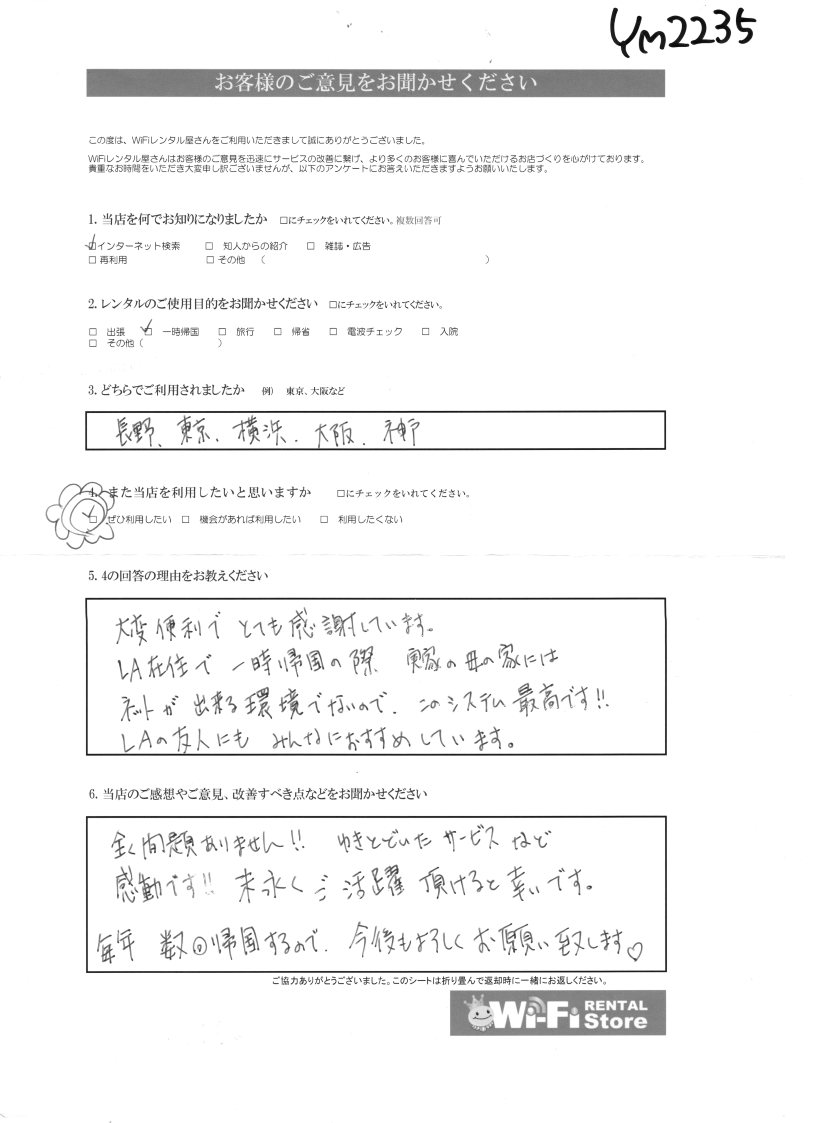 Ym2235
お客様のご意見をお聞かせください
この度は、WiFiレンタル屋さんをご利用いただきまして誠にありがとうございました。
WiFiレンタル屋さんはお客様のご意見を迅速にサービスの改善に繋げ、より多くのお客様に喜んでいただけるお店づくりを心がけております。
貴重なお時間をいただき大変申し訳ございませんが、以下のアンケートにお答えいただきますようお願いいたします。
1. 当店を何でお知りになりましたか □にチェックをいれてください。複数回答可
☑インターネット検索 □ 知人からの紹介 □ 雑誌・広告
□ 再利用 □ その他 （ ）
2. レンタルのご使用目的をお聞かせください □にチェックをいれてください。
□ 出張 ☑ 一時帰国 □ 旅行 □ 帰省 □ 電波チェック □ 入院
□ その他（ ）
3. どちらでご利用されましたか 例） 東京、大阪など
長野、東京、横浜、大阪、神戸
4. また当店を利用したいと思いますか □にチェックをいれてください。
☑ ぜひ利用したい □ 機会があれば利用したい □ 利用したくない
5. 4の回答の理由をお教えください
大変便利でとても感謝しています。
LA在住で一時帰国の際 実家の母の家には
ネットが出来る環境でないので、このシステム最高です!!
LAの友人にもみんなにおすすめしています。
6. 当店のご感想やご意見、改善すべき点などをお聞かせください
全く問題ありません!! ゆきとどいたサービスなど
感動です!! 末永くご活躍頂けると幸いです。
毎年 数回帰国するので、今後もよろしくお願い致します♡
ご協力ありがとうございました。このシートは折り畳んで返却時に一緒にお返しください。
Wi-Fi RENTAL Store